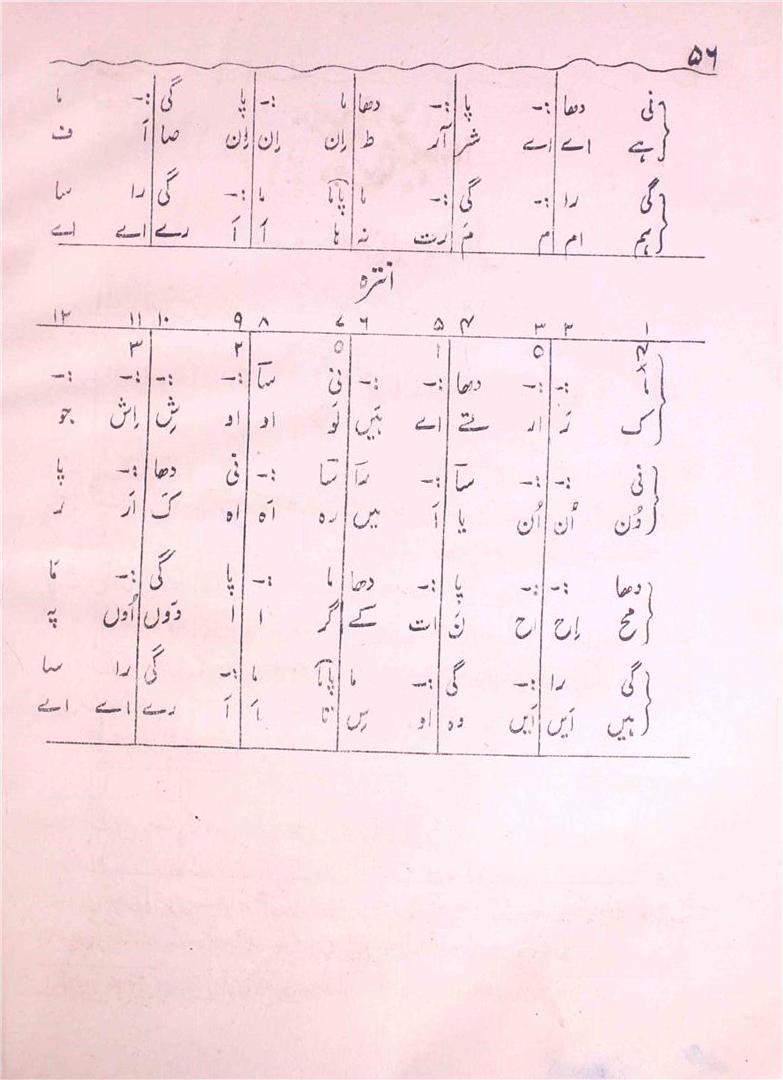 ۵۶
نی دھا -: پا -: دھا ما -: پا گی -: ما
ہے اے اے شر آر ط اِن اِن اِن صا اَ ف
گی را -: گی -: ما پاما ما -: گی را سا
ہم ام م مَ رت نہ ہا آ آ رے اے اے
انترہ
۱ ۲ ۳ ۴ ۵ ۶ ۷ ۸ ۹ ۱۰ ۱۱ ۱۲
× ۰ ۱ ۰ ۲ ۳
-: -: دھا -: -: نی سا -: -: -: -:
ک رَ ار تے اے ہَیں لَو او او شِ اِش جو
نی -: -: سا -: را سا -: نی دھا -: پا
دُن اُن اُن یا آ ہیں رہ اَہ اہ کَ اَر ر
دھا -: -: پا -: دھا ما -: پا گی -: ما
مح اِح اح نَ ات کے گر ا ا دَوں اُوں پہ
گی را -: گی -: ما پاما ما -: گی را سا
ہیں اَیں اَیں وہ او سِ تا آ آ رے اے اے